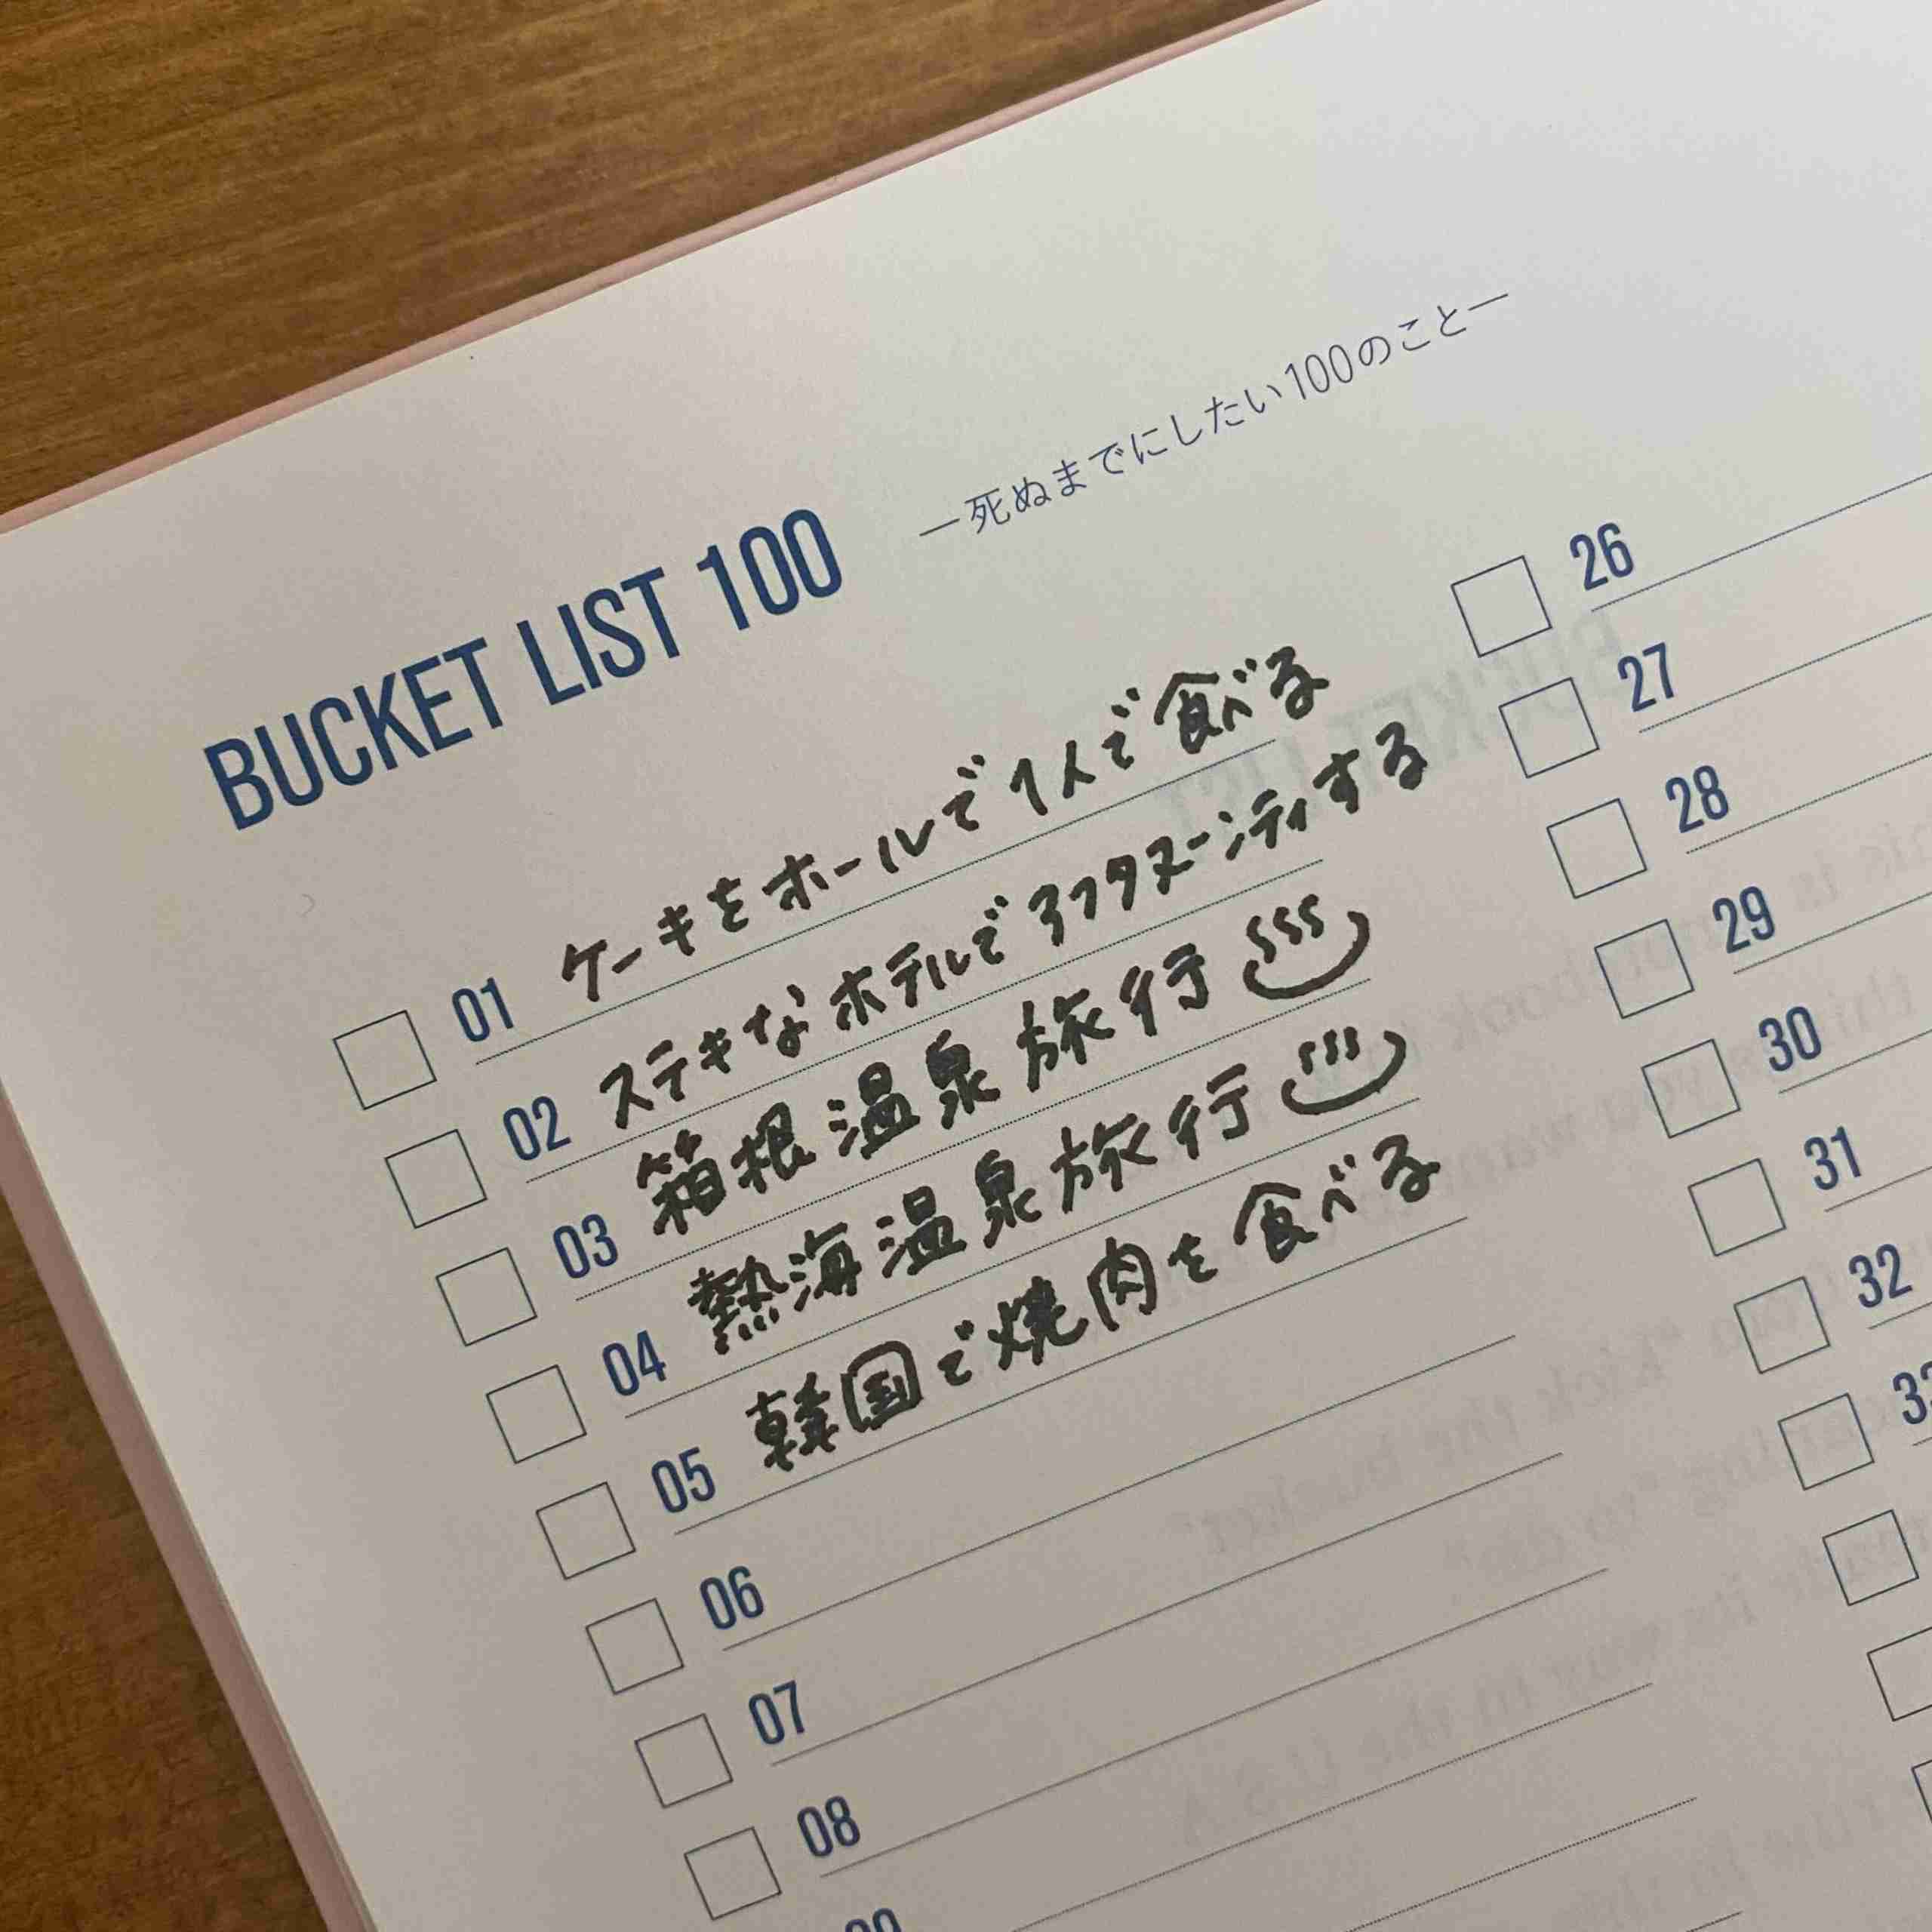 BUCKET LIST 100 ―死ぬまでにしたい100のこと―
01 ケーキをホールで1人で食べる
02 ステキなホテルでアフタヌーンティする
03 箱根温泉旅行
04 熱海温泉旅行
05 韓国で焼肉を食べる
06
07
08
26
27
28
29
30
31
32